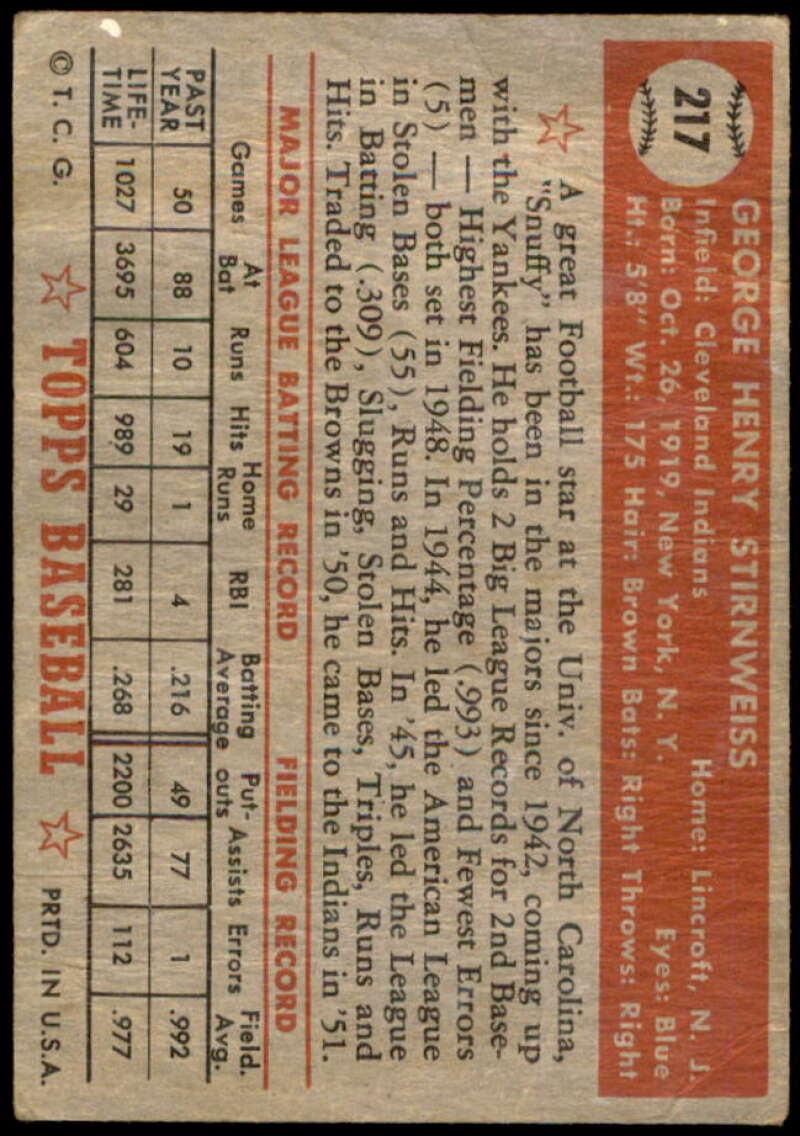 217
GEORGE HENRY STIRNWEISS
Infield: Cleveland Indians Home: Lincroft, N. J.
Born: Oct. 26, 1919, New York, N. Y. Eyes: Blue
Ht.: 5'8" Wt.: 175 Hair: Brown Bats: Right Throws: Right
A great Football star at the Univ. of North Carolina,
"Snuffy" has been in the majors since 1942, coming up
with the Yankees. He holds 2 Big League Records for 2nd Base-
men — Highest Fielding Percentage (.993) and Fewest Errors
(5) — both set in 1948. In 1944, he led the American League
in Stolen Bases (55), Runs and Hits. In '45, he led the League
in Batting (.309), Slugging, Stolen Bases, Triples, Runs and
Hits. Traded to the Browns in '50, he came to the Indians in '51.
MAJOR LEAGUE BATTING RECORD FIELDING RECORD
Games At Bat Runs Hits Home Runs RBI Batting Average Put-outs Assists Errors Field. Avg.
PAST YEAR 50 88 10 19 1 4 .216 49 77 1 .992
LIFE-TIME 1027 3695 604 989 29 281 .268 2200 2635 112 .977
© T. C. G. TOPPS BASEBALL PRTD. IN U.S.A.